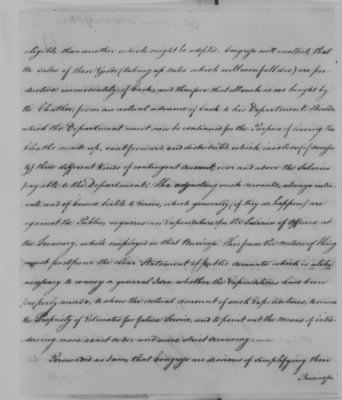 eligible than another which might be adopted. Congress will recollect, that
the sales of these Goods (taking up notes which will soon fall due) are pro-
ductive immediately of Cash, and therefore that all such as are bought by
the Clothier, form an actual advance of Cash to his Department. Besides
which the Department must now be continued for the Purpose of having the
Cloths made up, sent forward and distributed which involves (if necessa-
ry) those different kinds of contingent Accounts, over and above the Salaries
payable to the Department. The adjusting such Accounts, always intri-
cate and of Course liable to Errors, which generally (if they do happen) are
against the Public, requires an Expenditure for the Salaries of Officers at
the Treasury, while employed in that Business. This from the nature of things
must postpone the clear Statement of public Accounts which is
necessary to convey a general Idea whether the Expenditures have been
properly made, to shew the actual amount of such Expenditures, to evince
the Propriety of Estimates for future Service, and to point out the Means of intro-
ducing more exact order and more strict Oeconomy.
Persuaded as I am, that Congress are desirous of simplifying their
Business